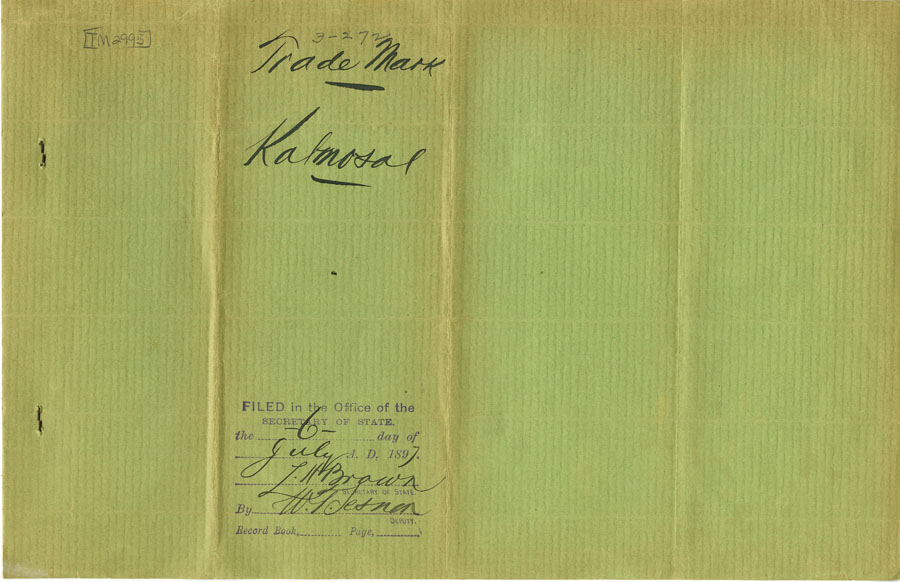 [TM2995]
3-272
Trade Mark
Kalmosal
FILED in the Office of the
SECRETARY OF STATE,
the -6- day of
July A. D. 1897.
L. H. Brown
SECRETARY OF STATE.
By W.
DEPUTY.
Record Book, Page,